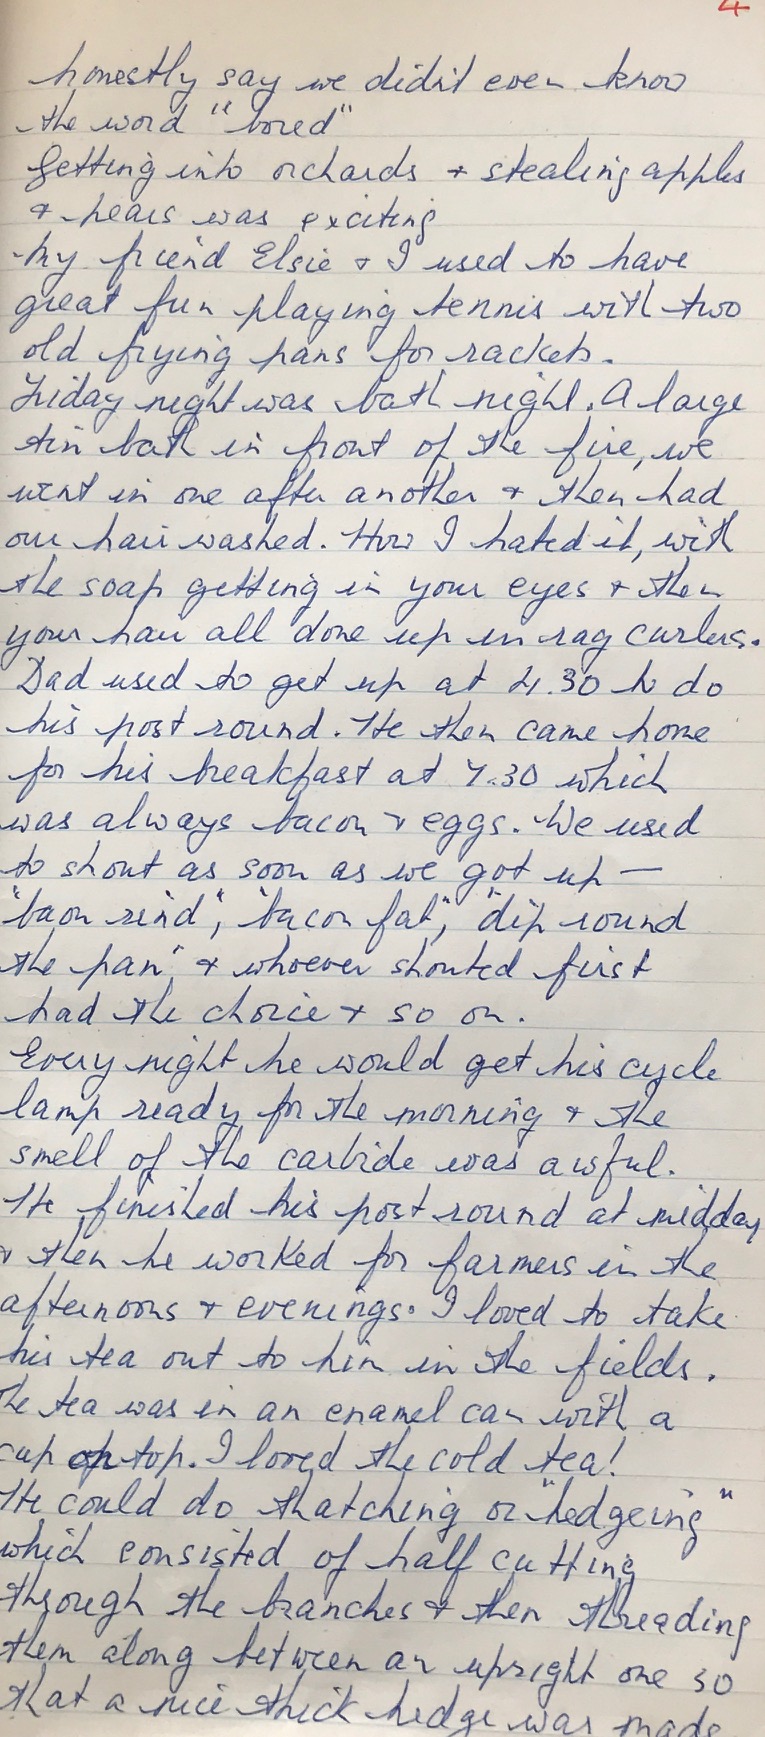 4
honestly say we didn't even know
the word "bored"
Getting into orchards + stealing apples
+ pears was exciting
My friend Elsie + I used to have
great fun playing tennis with two
old frying pans for rackets.
Friday night was bath night. A large
tin bath in front of the fire, we
went in one after another + then had
our hair washed. How I hated it, with
the soap getting in your eyes + then
your hair all done up in rag curlers.
Dad used to get up at 4.30 to do
his post round. He then came home
for his breakfast at 7.30 which
was always bacon + eggs. We used
to shout as soon as we got up —
"baon rind", "bacon fat", "dip round
the pan" + whoever shouted first
had the choice + so on.
Every night he would get his cycle
lamp ready for the morning + the
smell of the carbide was awful.
He finished his post round at midday
+ then he worked for farmers in the
afternoons + evenings. I loved to take
his tea out to him in the fields.
The tea was in an enamel can with a
cup on top. I loved the cold tea!
He could do thatching or "hedgeing"
which consisted of half cutting
through the branches + then threading
them along between an upright one so
that a nice thick hedge was made.